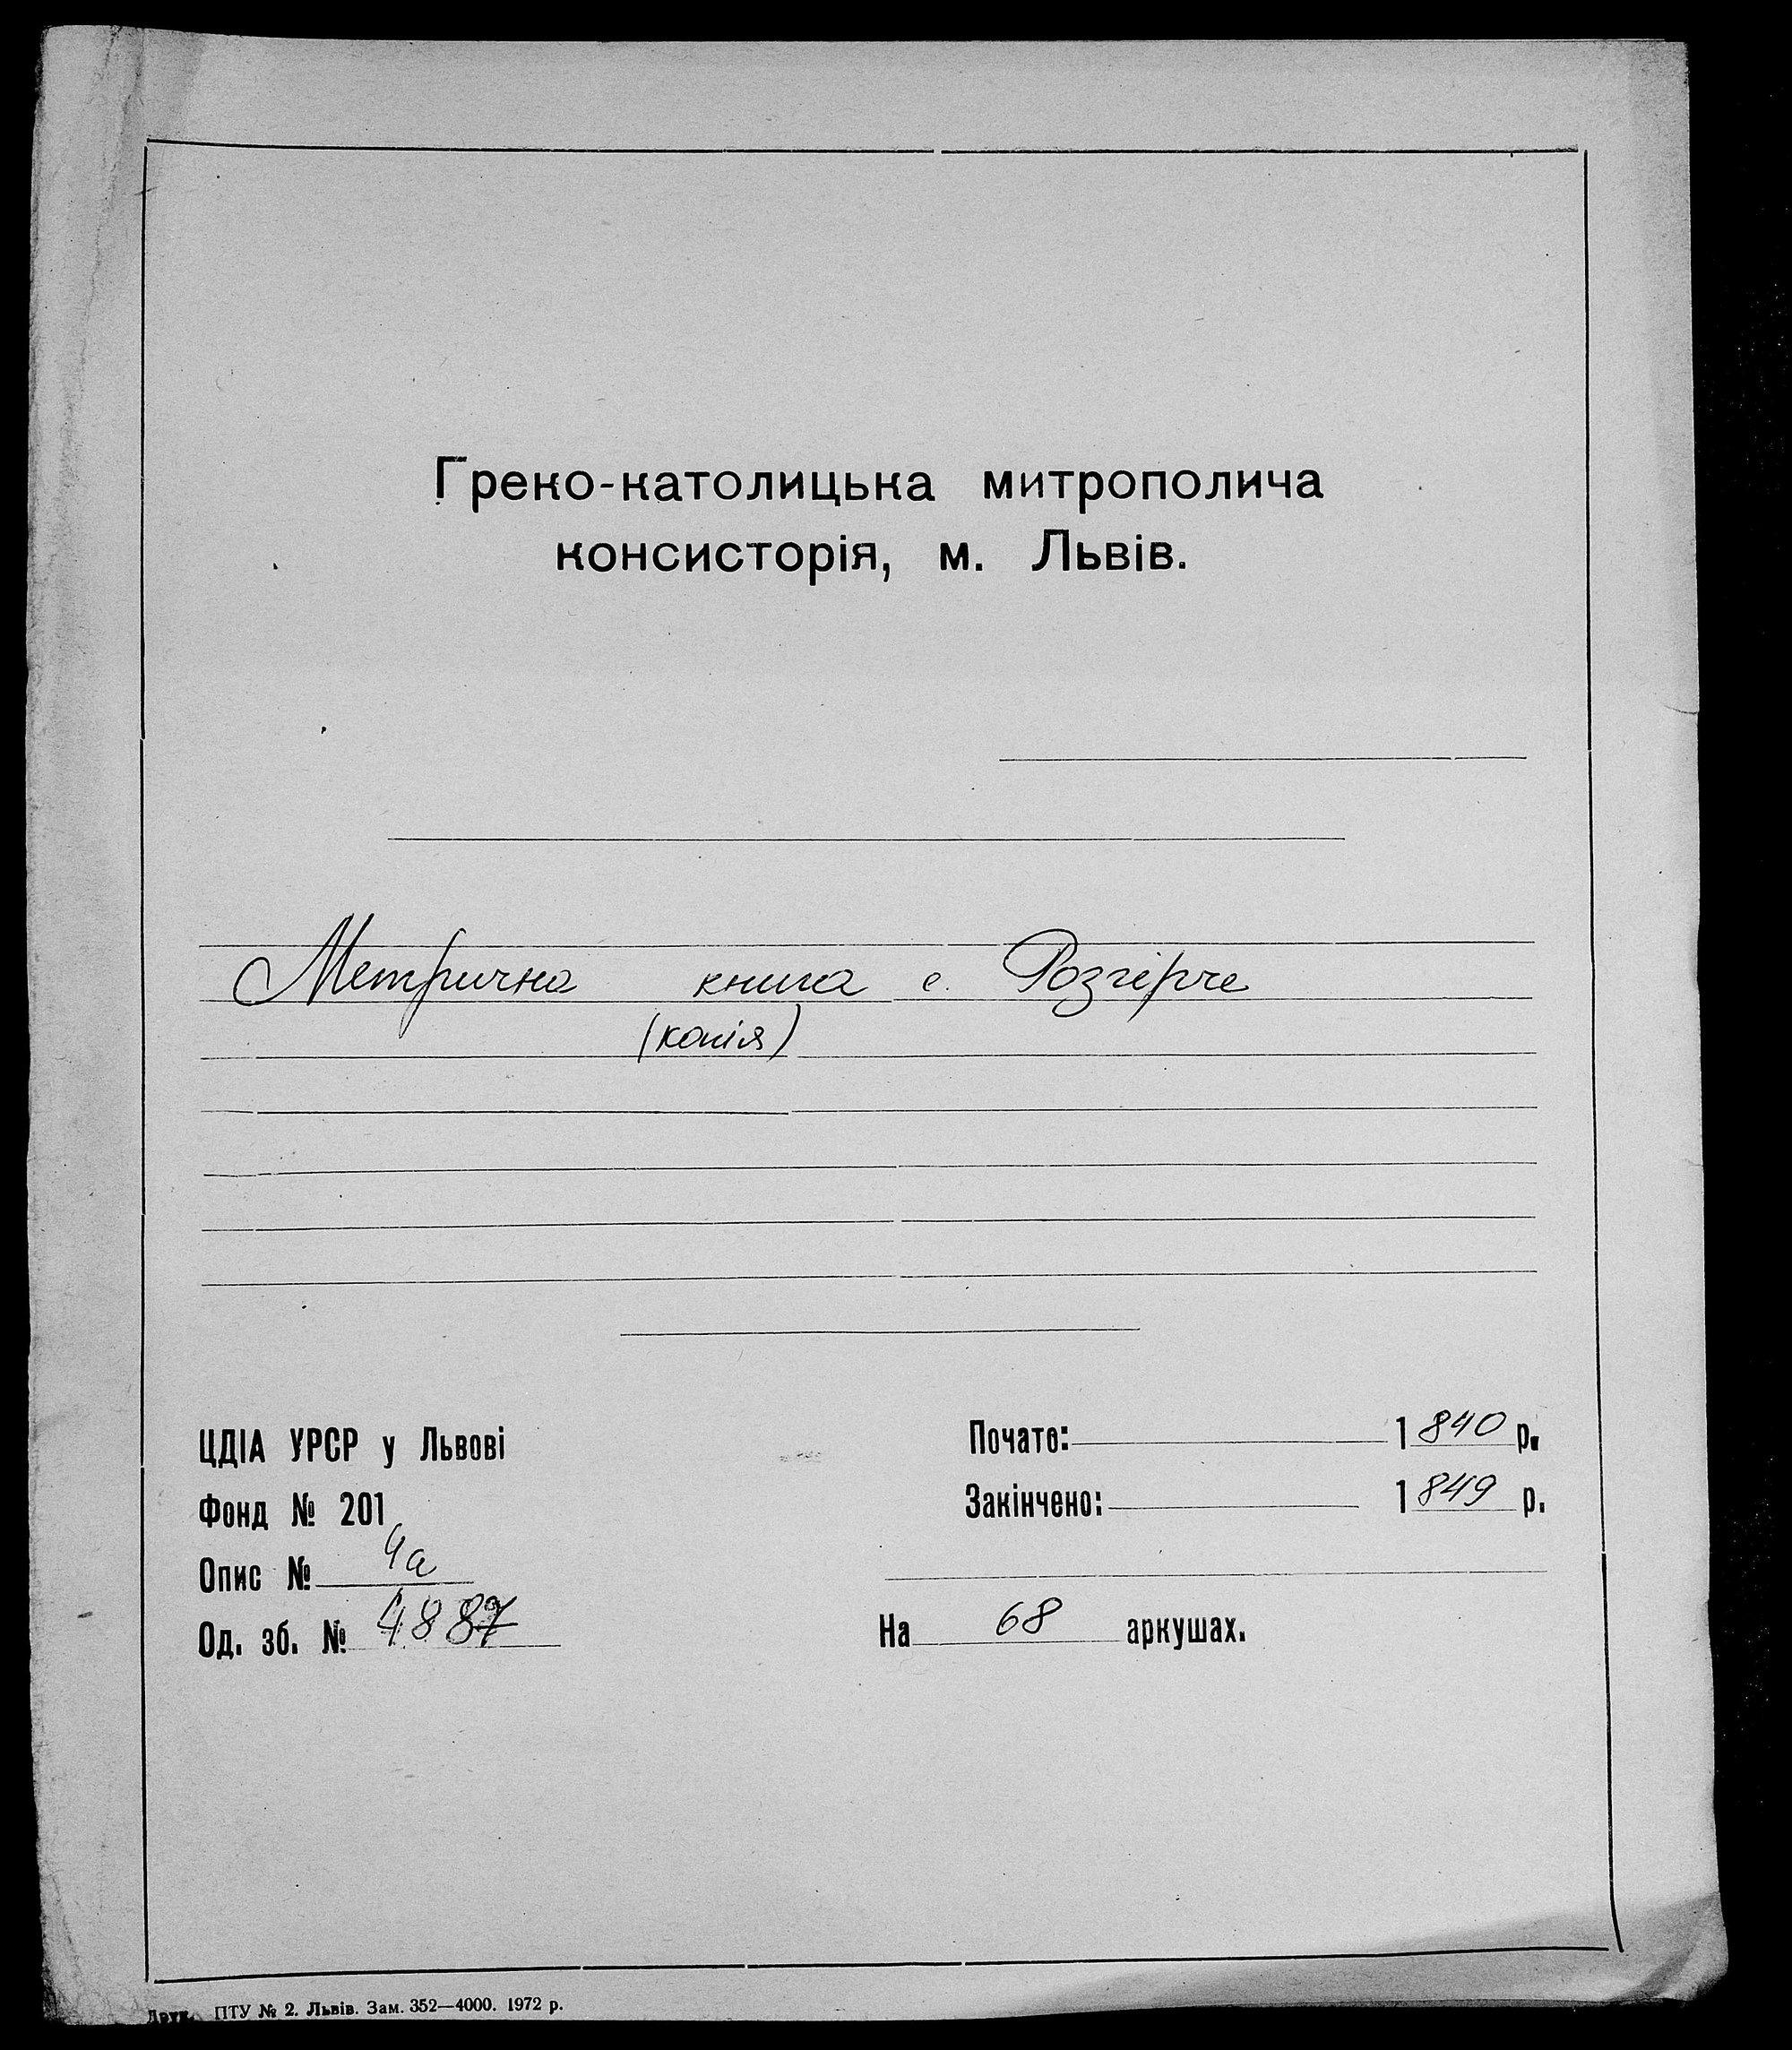 Греко-католицька митрополича
консисторія, м. Львів.
Метрична книга с. Розгірче
(копія)
ЦДІА УРСР у Львові
Фонд № 201
Опис № 4а
Од. зб. № 4887
Почато: 1840 р.
Закінчено: 1849 р.
На 68 аркушах.
Друк. ПТУ № 2. Львів. Зам. 352—4000. 1972 р.